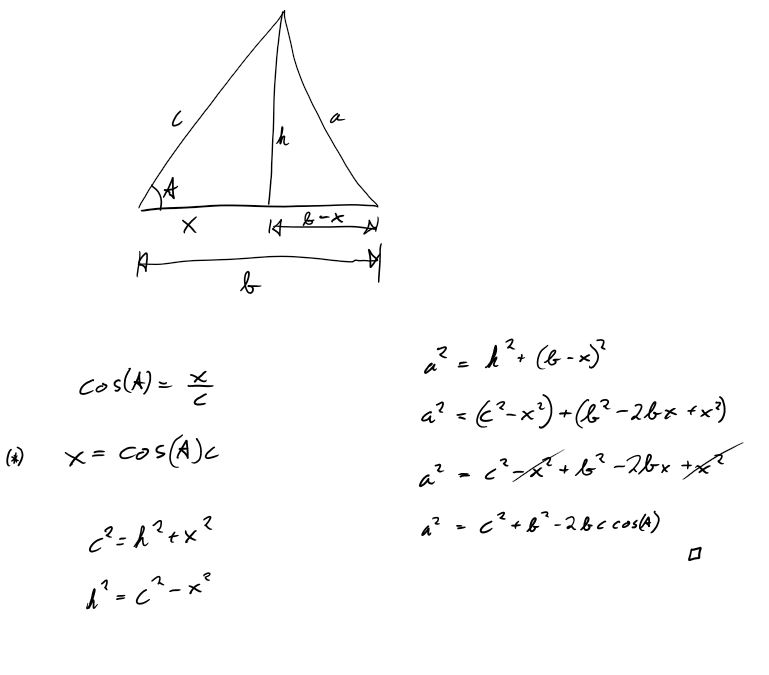 c
a
h
A
x
b-x
b
cos(A) = x/c
(*) x = cos(A)c
c² = h² + x²
h² = c² - x²
a² = h² + (b-x)²
a² = (c² - x²) + (b² - 2bx + x²)
a² = c² - x² + b² - 2bx + x²
a² = c² + b² - 2bc cos(A)
□